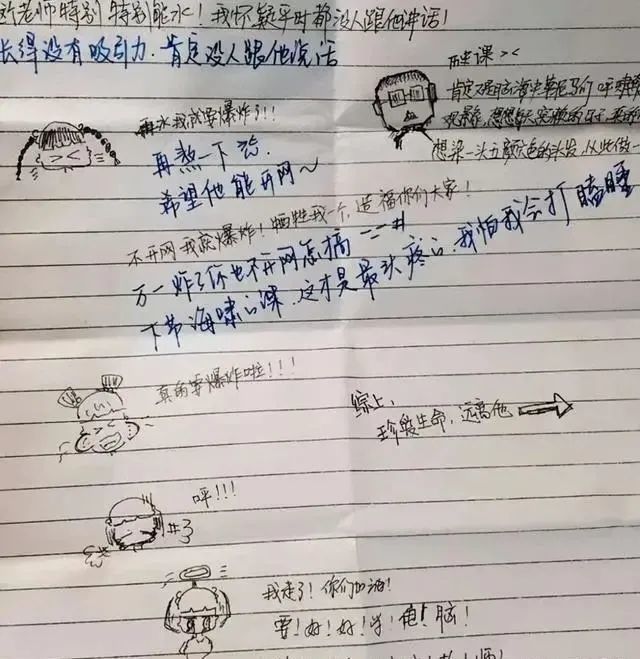 老师特别特别能水！我怀疑平时都没人跟他讲话！
长得没有吸引力，肯定没人跟他说话
历史课 ><
再水我就要爆炸了!!!
再熬一下
希望他能开网～
想染一头五颜六色的头发，从此做一
不开网我就爆炸！牺牲我一个，造福你们大家！
万一炸了你也不开网怎搞 ==#
下节海啸的课，这才是最头疼的，我怕我会打瞌睡
真的要爆炸啦!!!
综上，
珍爱生命，远离他
呼!!!
#3
我走了！你们加油！
要！好！好！学！电！脑！
师！